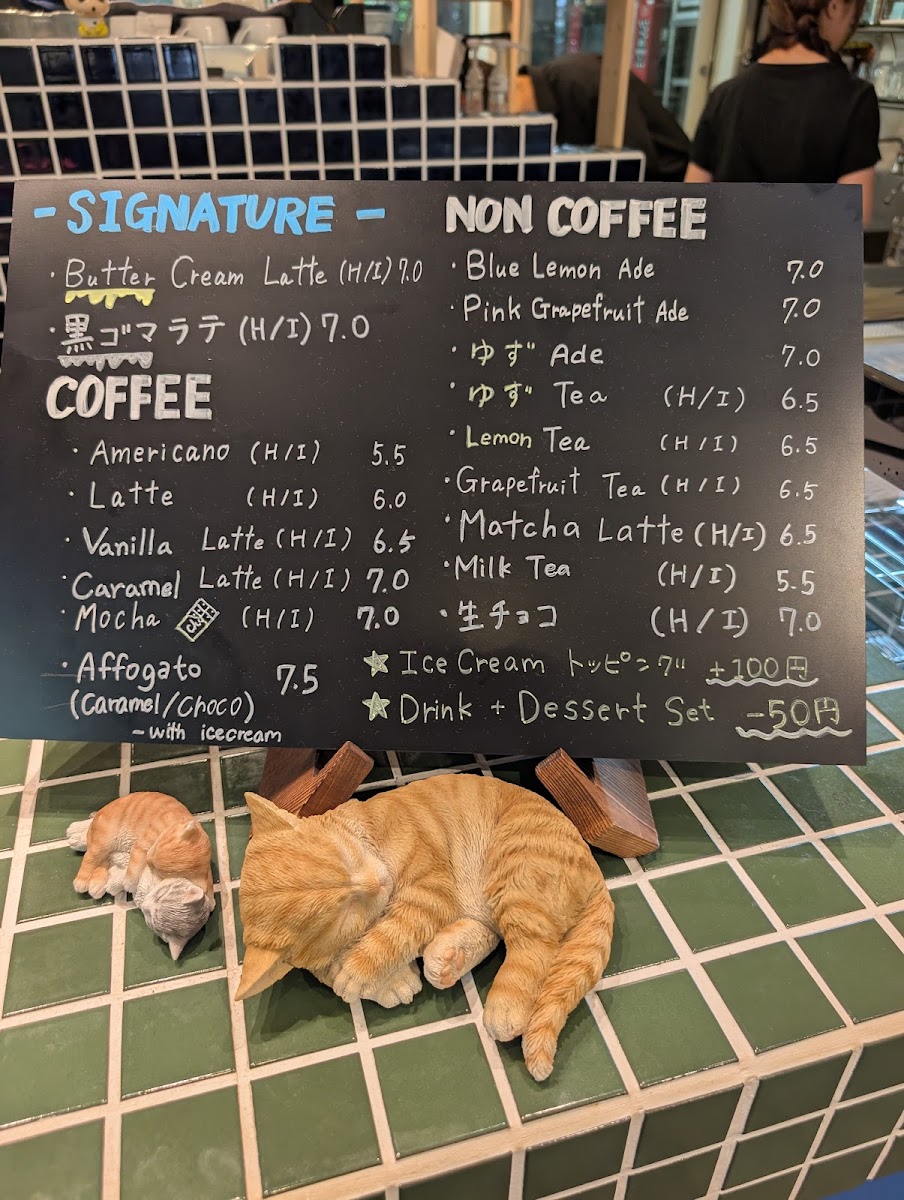 - SIGNATURE -
・Butter Cream Latte (H/I) 7.0
・黒ゴマラテ (H/I) 7.0
COFFEE
・Americano (H/I) 5.5
・Latte (H/I) 6.0
・Vanilla Latte (H/I) 6.5
・Caramel Latte (H/I) 7.0
・Mocha (H/I) 7.0
・Affogato 7.5
(Caramel/Choco)
- with icecream
NON COFFEE
・Blue Lemon Ade 7.0
・Pink Grapefruit Ade 7.0
・ゆず Ade 7.0
・ゆず Tea (H/I) 6.5
・Lemon Tea (H/I) 6.5
・Grapefruit Tea (H/I) 6.5
・Matcha Latte (H/I) 6.5
・Milk Tea (H/I) 5.5
・生チョコ (H/I) 7.0
★ Ice Cream トッピング +100円
★ Drink + Dessert Set -50円